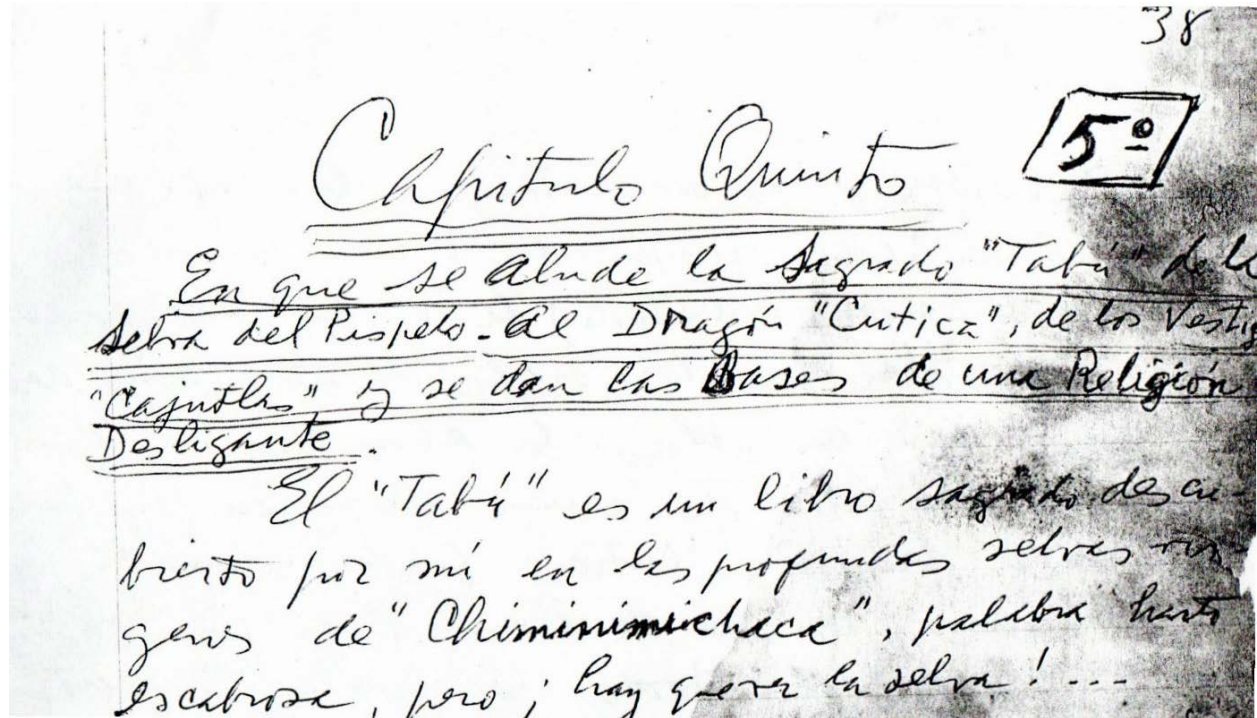 38
5º
Capitulo Quinto
En que se alude la Sagrado "Tabú" de la
Selva del Pispelo - al Dragón "Cutica", de los Vestig
"Cajutlas", y se dan las Bases de una Religión
Desligante.
El "Tabú" es un libro sagrado descu-
bierto por mí en las profundas selvas
de "Chiminimichaca", palabra harto
escabrosa, pero ¡hay que ver la selva! ...